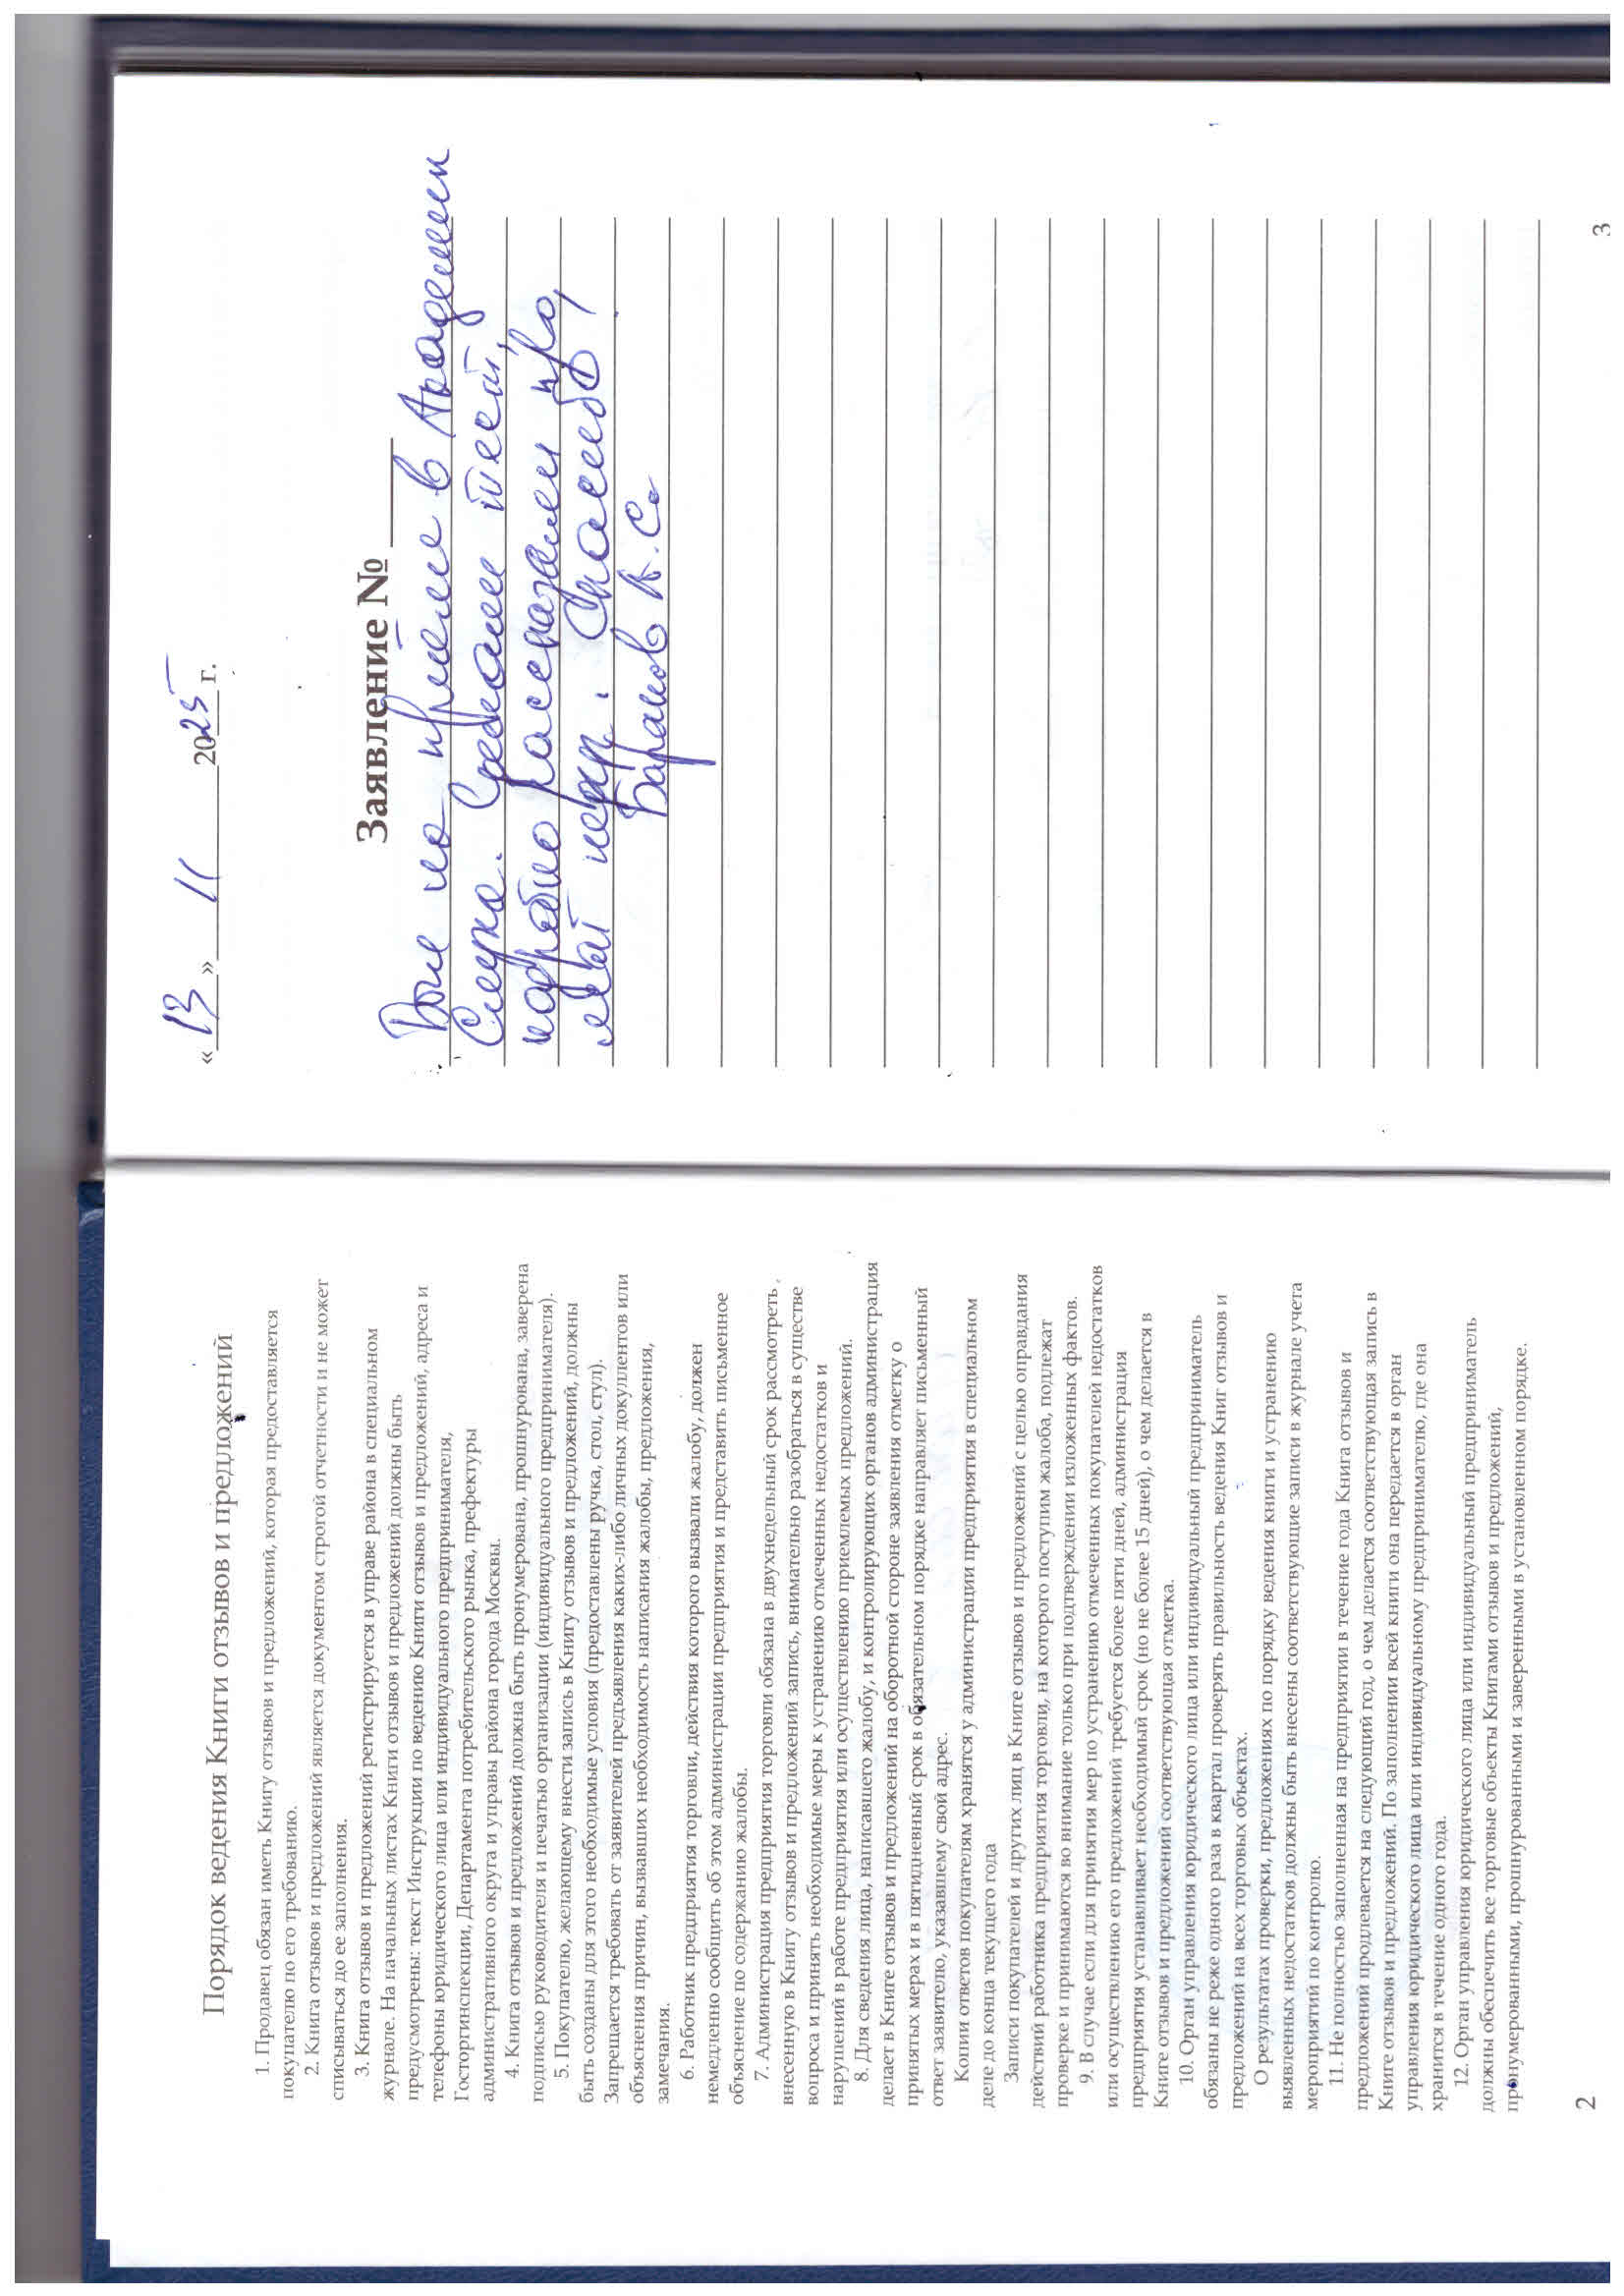 Порядок ведения Книги отзывов и предложений
1. Продавец обязан иметь Книгу отзывов и предложений, которая предоставляется
покупателю по его требованию.
2. Книга отзывов и предложений является документом строгой отчетности и не может
списываться до ее заполнения.
3. Книга отзывов и предложений регистрируется в управе района в специальном
журнале. На начальных листах Книги отзывов и предложений должны быть
предусмотрены: текст Инструкции по ведению Книги отзывов и предложений, адреса и
телефоны юридического лица или индивидуального предпринимателя,
Госторгинспекции, Департамента потребительского рынка, префектуры
административного округа и управы района города Москвы.
4. Книга отзывов и предложений должна быть пронумерована, прошнурована, заверена
подписью руководителя и печатью организации (индивидуального предпринимателя).
5. Покупателю, желающему внести запись в Книгу отзывов и предложений, должны
быть созданы для этого необходимые условия (предоставлены ручка, стол, стул).
Запрещается требовать от заявителей предъявления каких-либо личных документов или
объяснения причин, вызвавших необходимость написания жалобы, предложения,
замечания.
6. Работник предприятия торговли, действия которого вызвали жалобу, должен
немедленно сообщить об этом администрации предприятия и представить письменное
объяснение по содержанию жалобы.
7. Администрация предприятия торговли обязана в двухнедельный срок рассмотреть
внесенную в Книгу отзывов и предложений запись, внимательно разобраться в существе
вопроса и принять необходимые меры к устранению отмеченных недостатков и
нарушений в работе предприятия или осуществлению приемлемых предложений.
8. Для сведения лица, написавшего жалобу, и контролирующих органов администрация
делает в Книге отзывов и предложений на оборотной стороне заявления отметку о
принятых мерах и в пятидневный срок в обязательном порядке направляет письменный
ответ заявителю, указавшему свой адрес.
Копии ответов покупателям хранятся у администрации предприятия в специальном
деле до конца текущего года
Записи покупателей и других лиц в Книге отзывов и предложений с целью оправдания
действий работника предприятия торговли, на которого поступим жалоба, подлежат
проверке и принимаются во внимание только при подтверждении изложенных фактов.
9. В случае если для принятия мер по устранению отмеченных покупателей недостатков
или осуществлению его предложений требуется более пяти дней, администрация
предприятия устанавливает необходимый срок (но не более 15 дней), о чем делается в
Книге отзывов и предложений соответствующая отметка.
10. Орган управления юридического лица или индивидуальный предприниматель
обязаны не реже одного раза в квартал проверять правильность ведения Книг отзывов и
предложений на всех торговых объектах.
О результатах проверки, предложениях по порядку ведения книги и устранению
выявленных недостатков должны быть внесены соответствующие записи в журнале учета
мероприятий по контролю.
11. Не полностью заполненная на предприятии в течение года Книга отзывов и
предложений продлевается на следующий год, о чем делается соответствующая запись в
Книге отзывов и предложений. По заполнении всей книги она передается в орган
управления юридического лица или индивидуальному предпринимателю, где она
хранится в течение одного года.
12. Орган управления юридического лица или индивидуальный предприниматель
должны обеспечить все торговые объекты Книгами отзывов и предложений,
пронумерованными, прошнурованными и заверенными в установленном порядке.
2
« 13 » 11 2025 г.
Заявление №
Был на приёме в Академии
Слуха. Сделали тест,
подробно рассказали про
апп. Спасибо!
Баранов А.С.
3